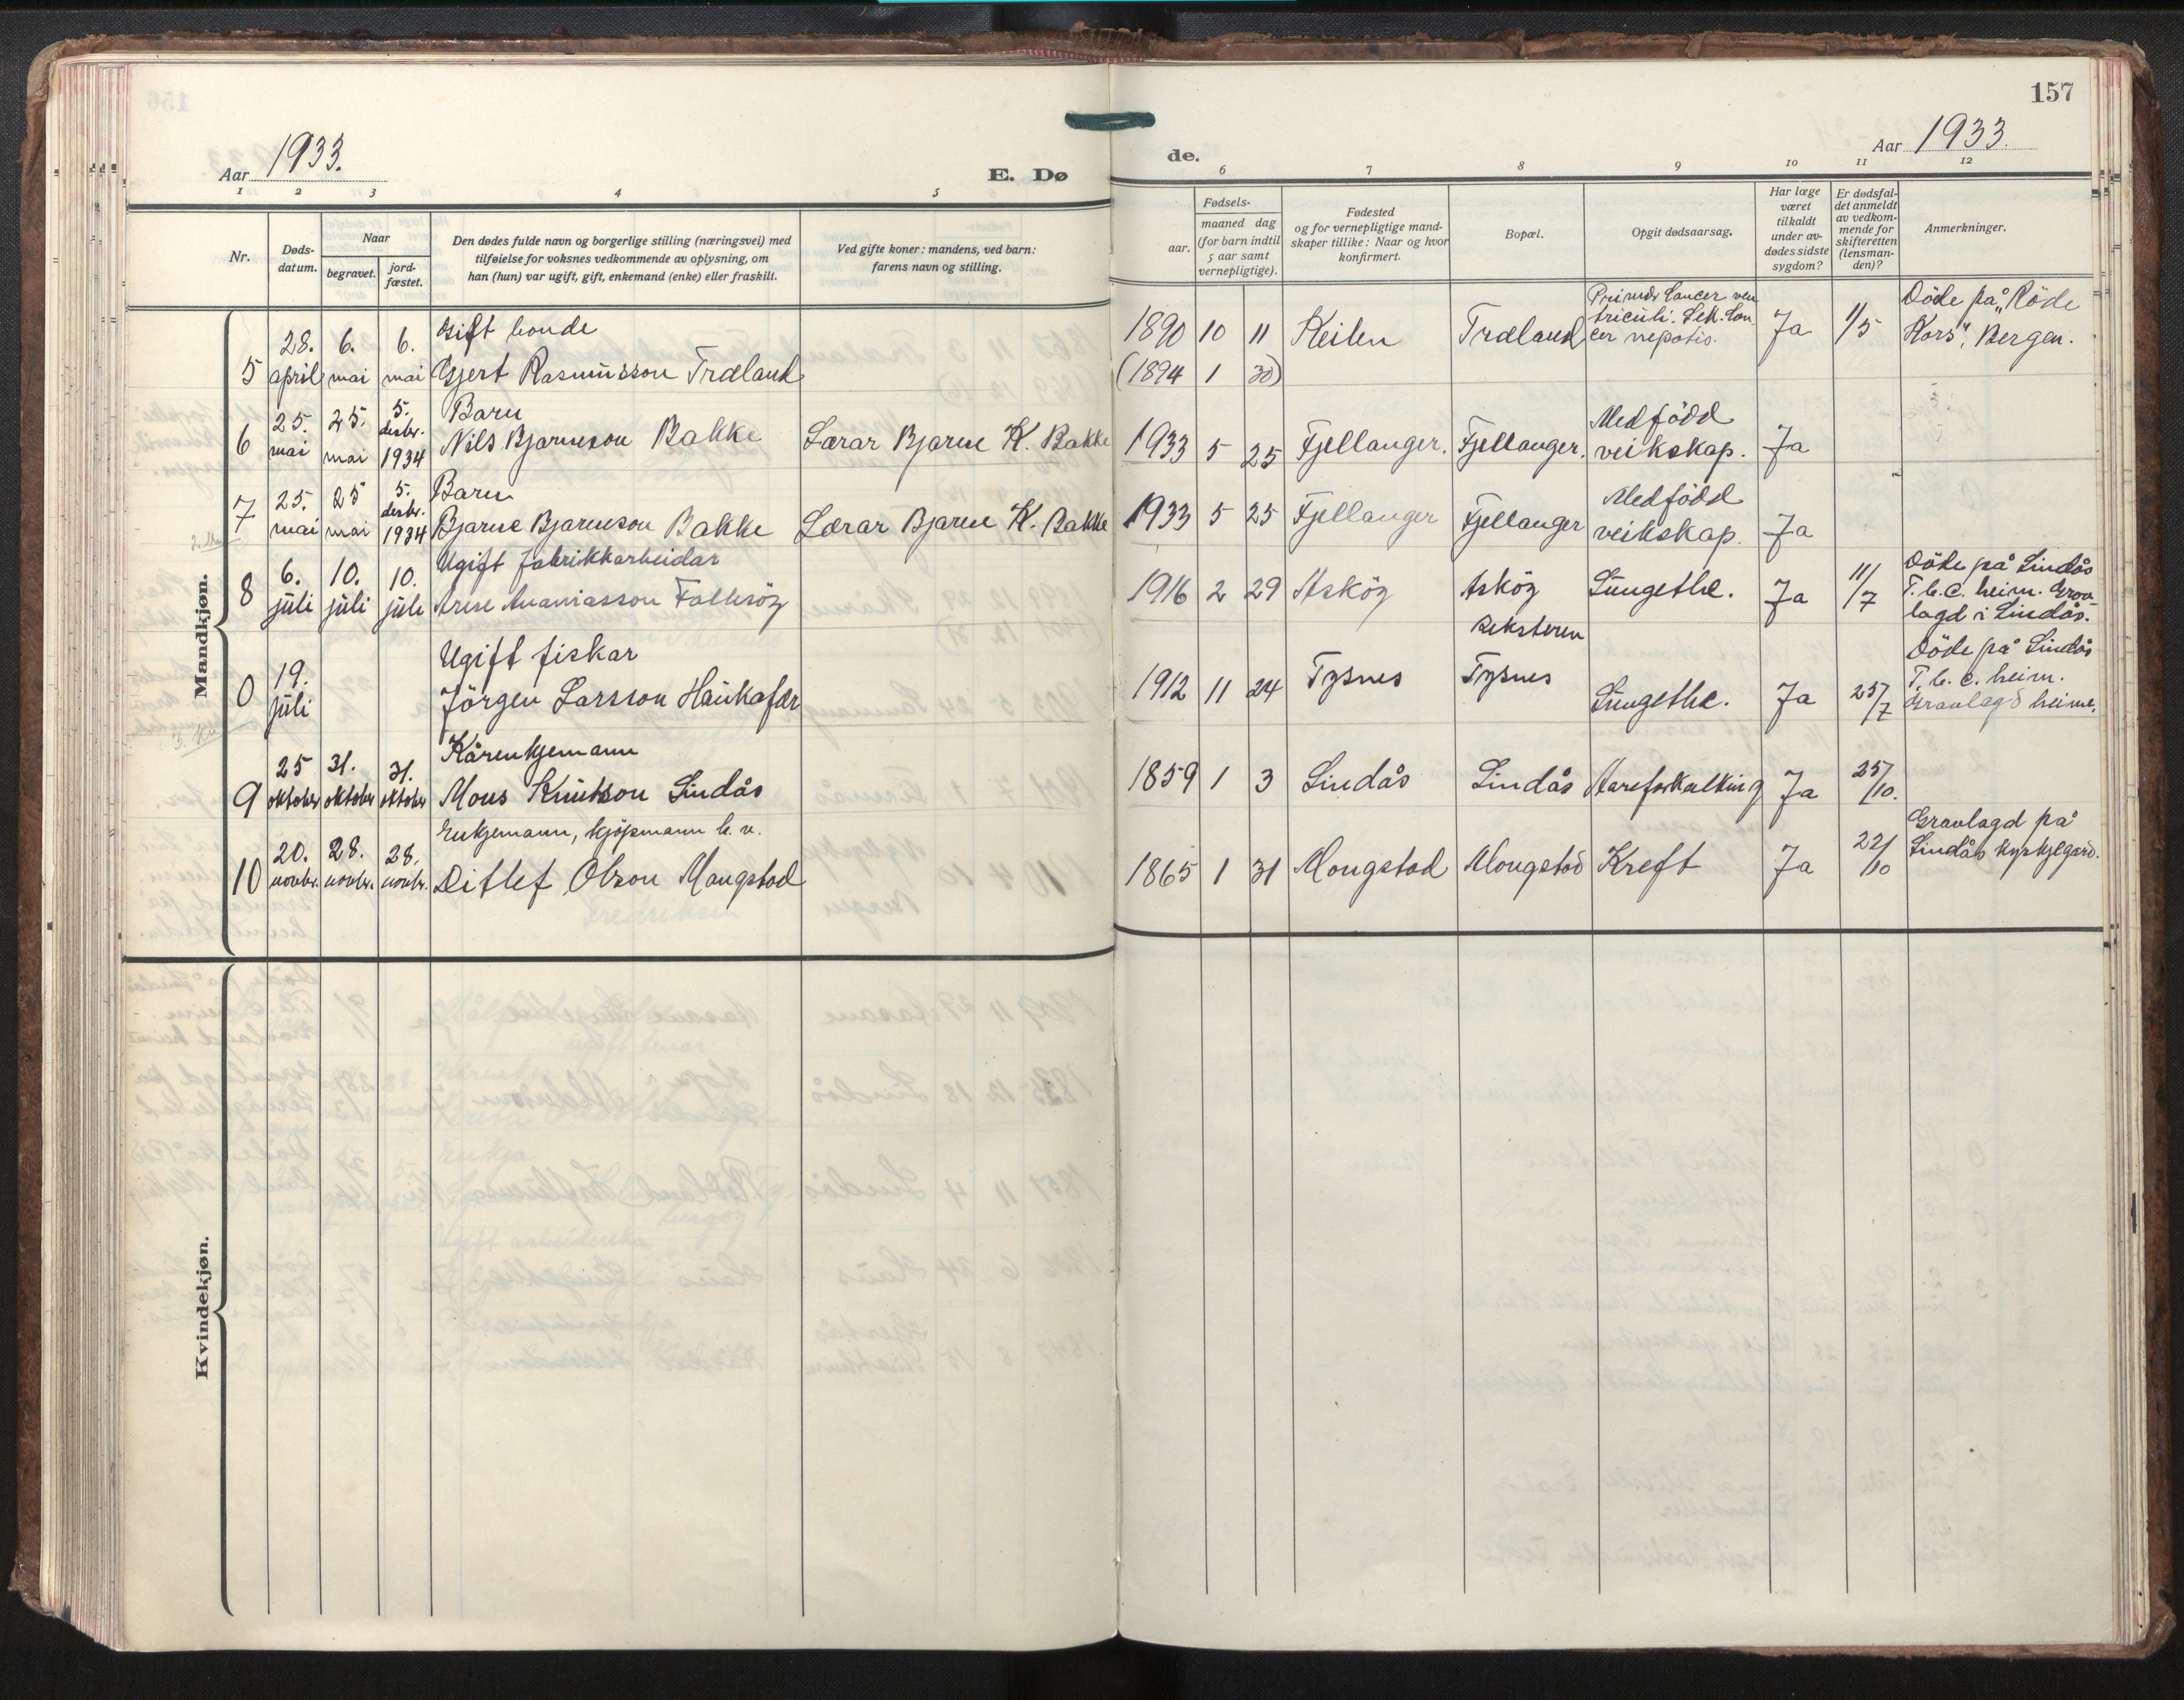 157
Aar 1933.
E. Dø
de.
Aar 1933.
1 2 3 4 5
6 7 8 9 10 11 12
Nr.
Døds-
datum.
Naar
begravet.
jord-
fæstet.
Den dødes fulde navn og borgerlige stilling (næringsvei) med
tilføielse for voksnes vedkommende av oplysning, om
han (hun) var ugift, gift, enkemand (enke) eller fraskilt.
Ved gifte koner: mandens, ved barn:
farens navn og stilling.
Fødsels-
aar.
maaned dag
(for barn indtil
5 aar samt
vernepligtige).
Fødested
og for vernepligtige mand-
skaper tillike: Naar og hvor
konfirmert.
Bopæl.
Opgit dødsaarsag.
Har læge
været
tilkaldt
under av-
dødes sidste
sygdom?
Er dødsfal-
det anmeldt
av vedkom-
mende for
skifteretten
(lensman-
den)?
Anmerkninger.
Mandkjøn.
5
28.
april
6.
mai
6.
mai
Gift bonde
Gjert Rasmusson Træland
1890 10 11
(1894 1 30)
Keilen
Træland
Primær Cancer ven
triculi. Sek. Can
cer
Ja
1/5
Döde på "Röde
Kors", Bergen.
6
25.
mai
25.
mai
5.
desbr.
1934
Barn
Nils Bjarneson Bakke
Lærar Bjarne K. Bakke
1933 5 25
Fjellanger.
Fjellanger.
Medfödd
veikskap.
Ja
7
25.
mai
25
mai
5.
desbr.
1934
Barn
Bjarne Bjarneson Bakke
Lærar Bjarne K. Bakke
1933 5 25
Fjellanger
Fjellanger
Medfödd
veikskap.
Ja
8
6.
juli
10.
juli
10.
juli
Ugift fabrikkarbeidar
Arne Ananiasson Follesöy
1916 2 29
Asköy
Asköy
Lungetbc.
Ja
11/7
Döde på Lindås
T.b.c. heim. Grav
lagd i Lindås.
0
19.
juli
Ugift fiskar
Jörgen Larsson Haukafær
1912 11 24
Tysnes
Reksteren
Tysnes
Lungetbc.
Ja
25/7
Döde på Lindås
T.b.c. heim.
Gravlagd heime.
9
25
oktober
31.
oktober
31.
oktober
Kårenkjemann
Mons Knutson Lindås
1859 1 3
Lindås
Lindås
Aareforkalking
Ja
25/10.
10
20.
novbr.
28.
novbr.
28.
novbr.
Enkjemann, kjöpmann b. v.
Ditlef Olson Mongstad
1865 1 31
Mongstad
Mongstad
Kreft
Ja
22/10
Gravlagd på
Lindås kyrkjegard.
Kvindekjøn.